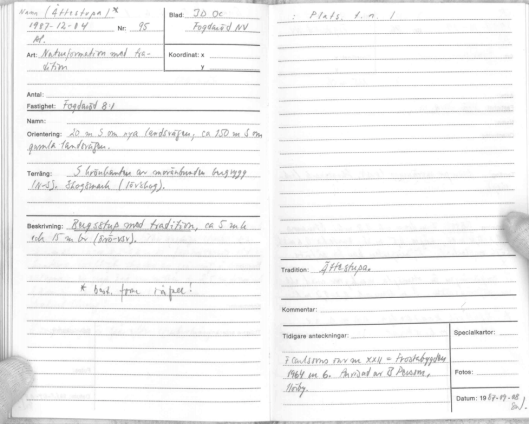 Namn (Ättestupa)*
1987-12-04 Nr: 95
Blad: JD OC
Fogdaröd NV
Art: Naturformation med tra-
dition
Koordinat: x
y
Antal:
Fastighet: Fogdaröd 8:1
Namn:
Orientering: 20 m S om nya landsvägen, ca 150 m S om
gamla landsvägen.
Terräng: S krönkanten av moränbunden bergrygg
(N-S). Skogsmark (lövskog).
Beskrivning: Bergsstup med tradition, ca 5 m h
och 15 m br (ÖNÖ-VSV).
* best. form
: Plats, t.n. 1
Tradition: Ättestupa.
Kommentar:
Tidigare anteckningar:
Carlssons inv nr XXII = Frostabygden
1964 nr 6. Anvisad av B Persson,
Höby.
Specialkartor:
Fotos:
Datum: 1987-09-08